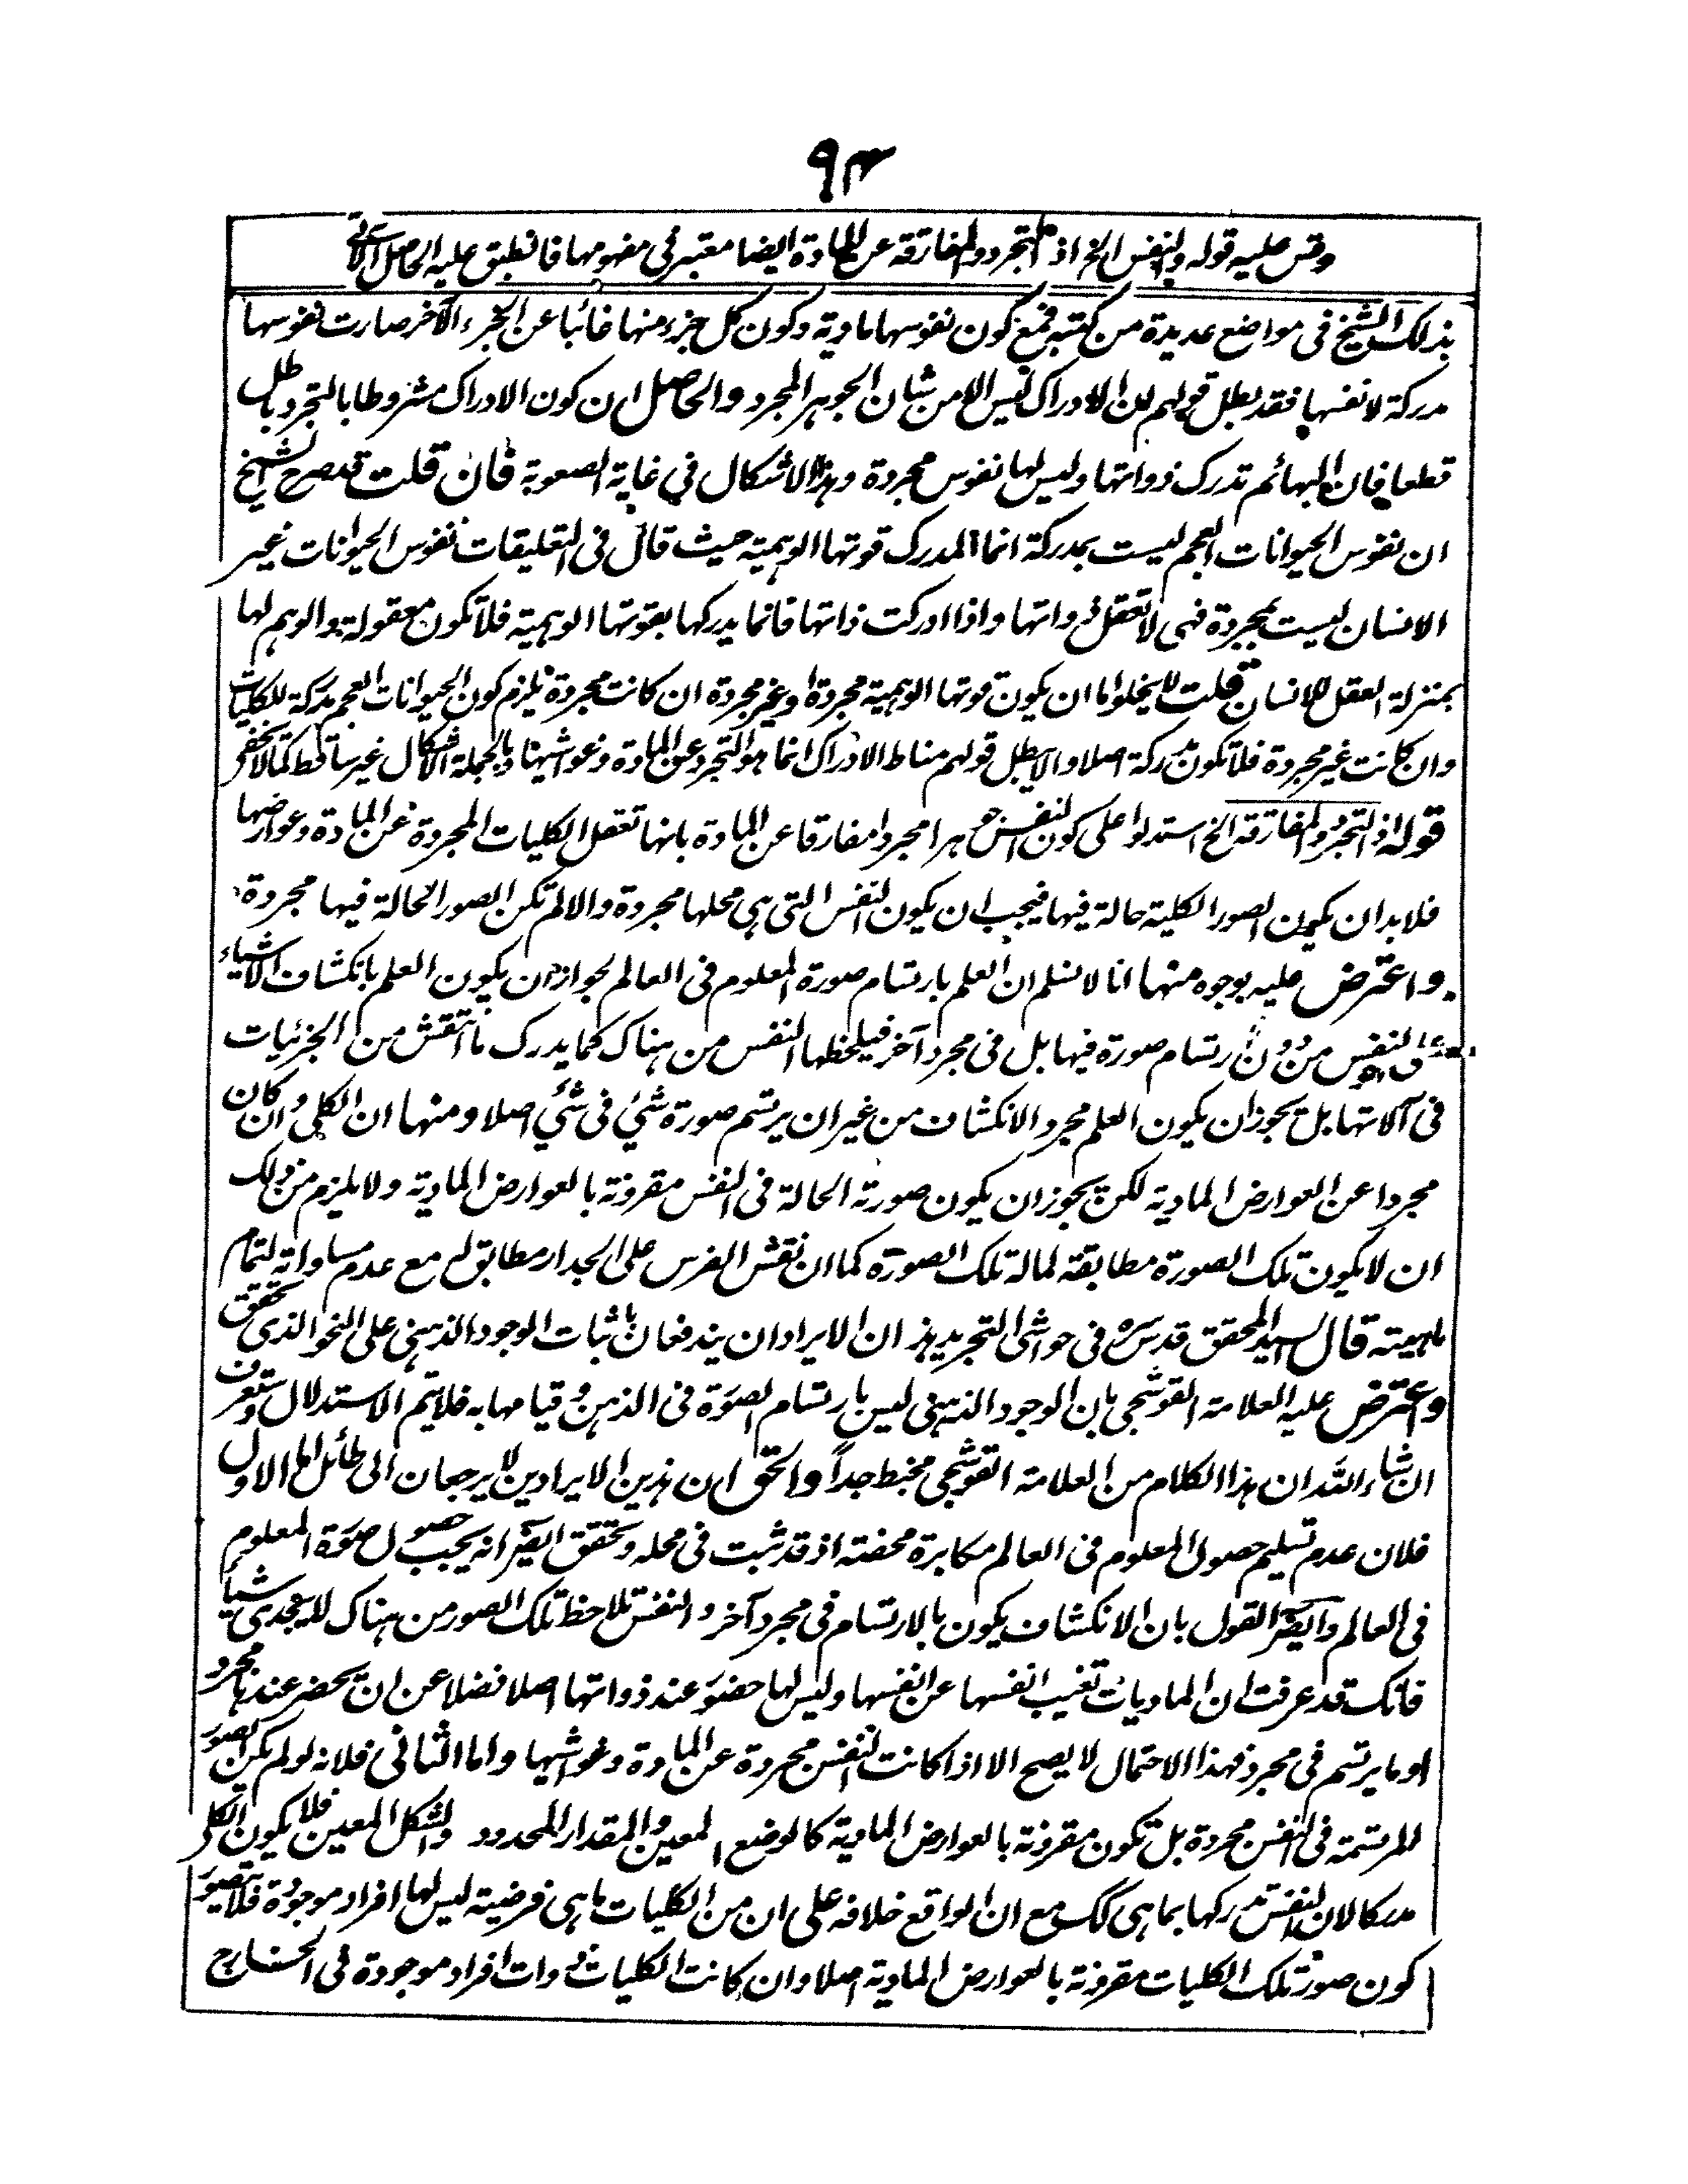 ٩٣
وقس عليه قوله والنفس الخ اذ التجرد والمفارقة عن المادة ايضا معتبر في مفهومها فانطبق عليه الحاصل الآتي
بذلك الشيخ فى مواضع عديدة من كتبه فمع كون نفوسها مادية وكون كل جزء منها غائبا عن الجزء الآخر صارت نفوسها
مدركة لانفسها فقد بطل قولهم ان الادراك ليس الا من شان الجوهر المجرد والحاصل ان كون الادراك مشروطا بالتجرد باطل
قطعا فان البهائم تدرك ذواتها وليس لها نفوس مجردة وهذا الاشكال في غاية الصعوبة فان قلت قد صرح الشيخ
ان نفوس الحيوانات العجم ليست بمدركة انما المدرك قوتها الوهمية حيث قال فى التعليقات نفوس الحيوانات غير
الانسان ليست بمجردة فهى لا تعقل ذواتها واذا ادركت ذاتها فانما يدركها بقوتها الوهمية فلا تكون معقولة والوهم لها
بمنزلة العقل للانسان قلت لا يخلو اما ان يكون قوتها الوهمية مجردة او غير مجردة ان كانت مجردة يلزم كون الحيوانات العجم مدركة للكليات
وان كانت غير مجردة فلا تكون مدركة اصلا والا يبطل قولهم مناط الادراك انما هو التجرد عن المادة وغواشيها وبالجملة الاشكال غير ساقط كما لا يخفى
قوله اذ التجرد والمفارقة الخ استدلوا على كون النفس جوهرا مجردا مفارقا عن المادة بانها تعقل الكليات المجردة عن المادة وعوارضها
فلا بد ان يكون الصور الكلية حالة فيها فيجب ان يكون النفس التى هى محلها مجردة والا لم تكن الصور الحالة فيها مجردة
واعترض عليه بوجوه منها انا لا نسلم ان العلم بارتسام صورة المعلوم فى العالم لجواز ان يكون العلم بانكشاف الاشياء
على النفس من دون ارتسام صورة فيها بل فى مجرد آخر فيلحظها النفس من هناك كما يدرك ما انتقش من الجزئيات
فى آلاتها بل يجوز ان يكون العلم مجرد الانكشاف من غير ان يرتسم صورة شئ فى شئ اصلا ومنها ان الكلى وان كان
مجردا عن العوارض المادية لكن يجوز ان يكون صورته الحالة فى النفس مقرونة بالعوارض المادية ولا يلزم من ذلك
ان لا يكون تلك الصورة مطابقة لما له تلك الصورة كما ان نقش الفرس على الجدار مطابق له مع عدم مساواته لتمام
ماهيته قال السيد المحقق قدس سره فى حواشى التجريد هذان الايرادان يندفعان باثبات الوجود الذهنى على النحو الذى تحقق
واعترض عليه العلامة القوشجى بان الوجود الذهنى ليس بارتسام الصورة فى الذهن وقيامها به فلا يتم الاستدلال وستعرف
ان شاء الله ان هذا الكلام من العلامة القوشجى مخبط جداً والحق ان هذين الايرادين لا يرجعان الى طائل اما الاول
فلان عدم تسليم حصول المعلوم فى العالم مكابرة محضة اذ قد ثبت فى محله وتحقق ايضا انه يجب حصول صورة المعلوم
فى العالم وايضا القول بان الانكشاف يكون بالارتسام فى مجرد آخر والنفس تلاحظ تلك الصور من هناك لا يجدى شيأ
فانك قد عرفت ان الماديات تغيب انفسها عن انفسها وليس لها حضور عند ذواتها اصلا فضلا عن ان يحضر عندها مجرد
او ما يرتسم فى مجرد فهذا الاحتمال لا يصح الا اذا كانت النفس مجردة عن المادة وغواشيها واما الثانى فلانه لو لم تكن الصور
المرتسمة فى النفس مجردة بل تكون مقرونة بالعوارض المادية كالوضع المعين والمقدار المحدود والشكل المعين فلا يكون الكلى
مدركا لان النفس تدركها بما هى كك مع ان الواقع خلافه على ان من الكليات ما هى فرضية ليس لها افراد موجودة فلا يتصور
كون صور تلك الكليات مقرونة بالعوارض المادية اصلا وان كانت الكليات ذوات افراد موجودة فى الخارج